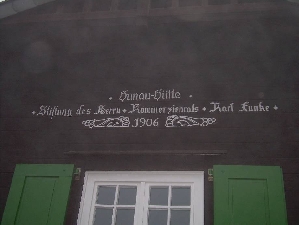 · Gunau-Hütte ·
· Stiftung des Herrn · Kommerzienrats · Karl Funke ·
1906